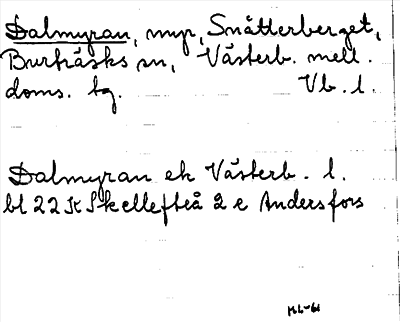 Dalmyran, myr, Snåtterberget,
Burträsks sn, Västerb. mell.
doms. bg. Vb. l.
Dalmyran ek Västerb. l.
bl 22 K Skellefteå 2 e Andersfors